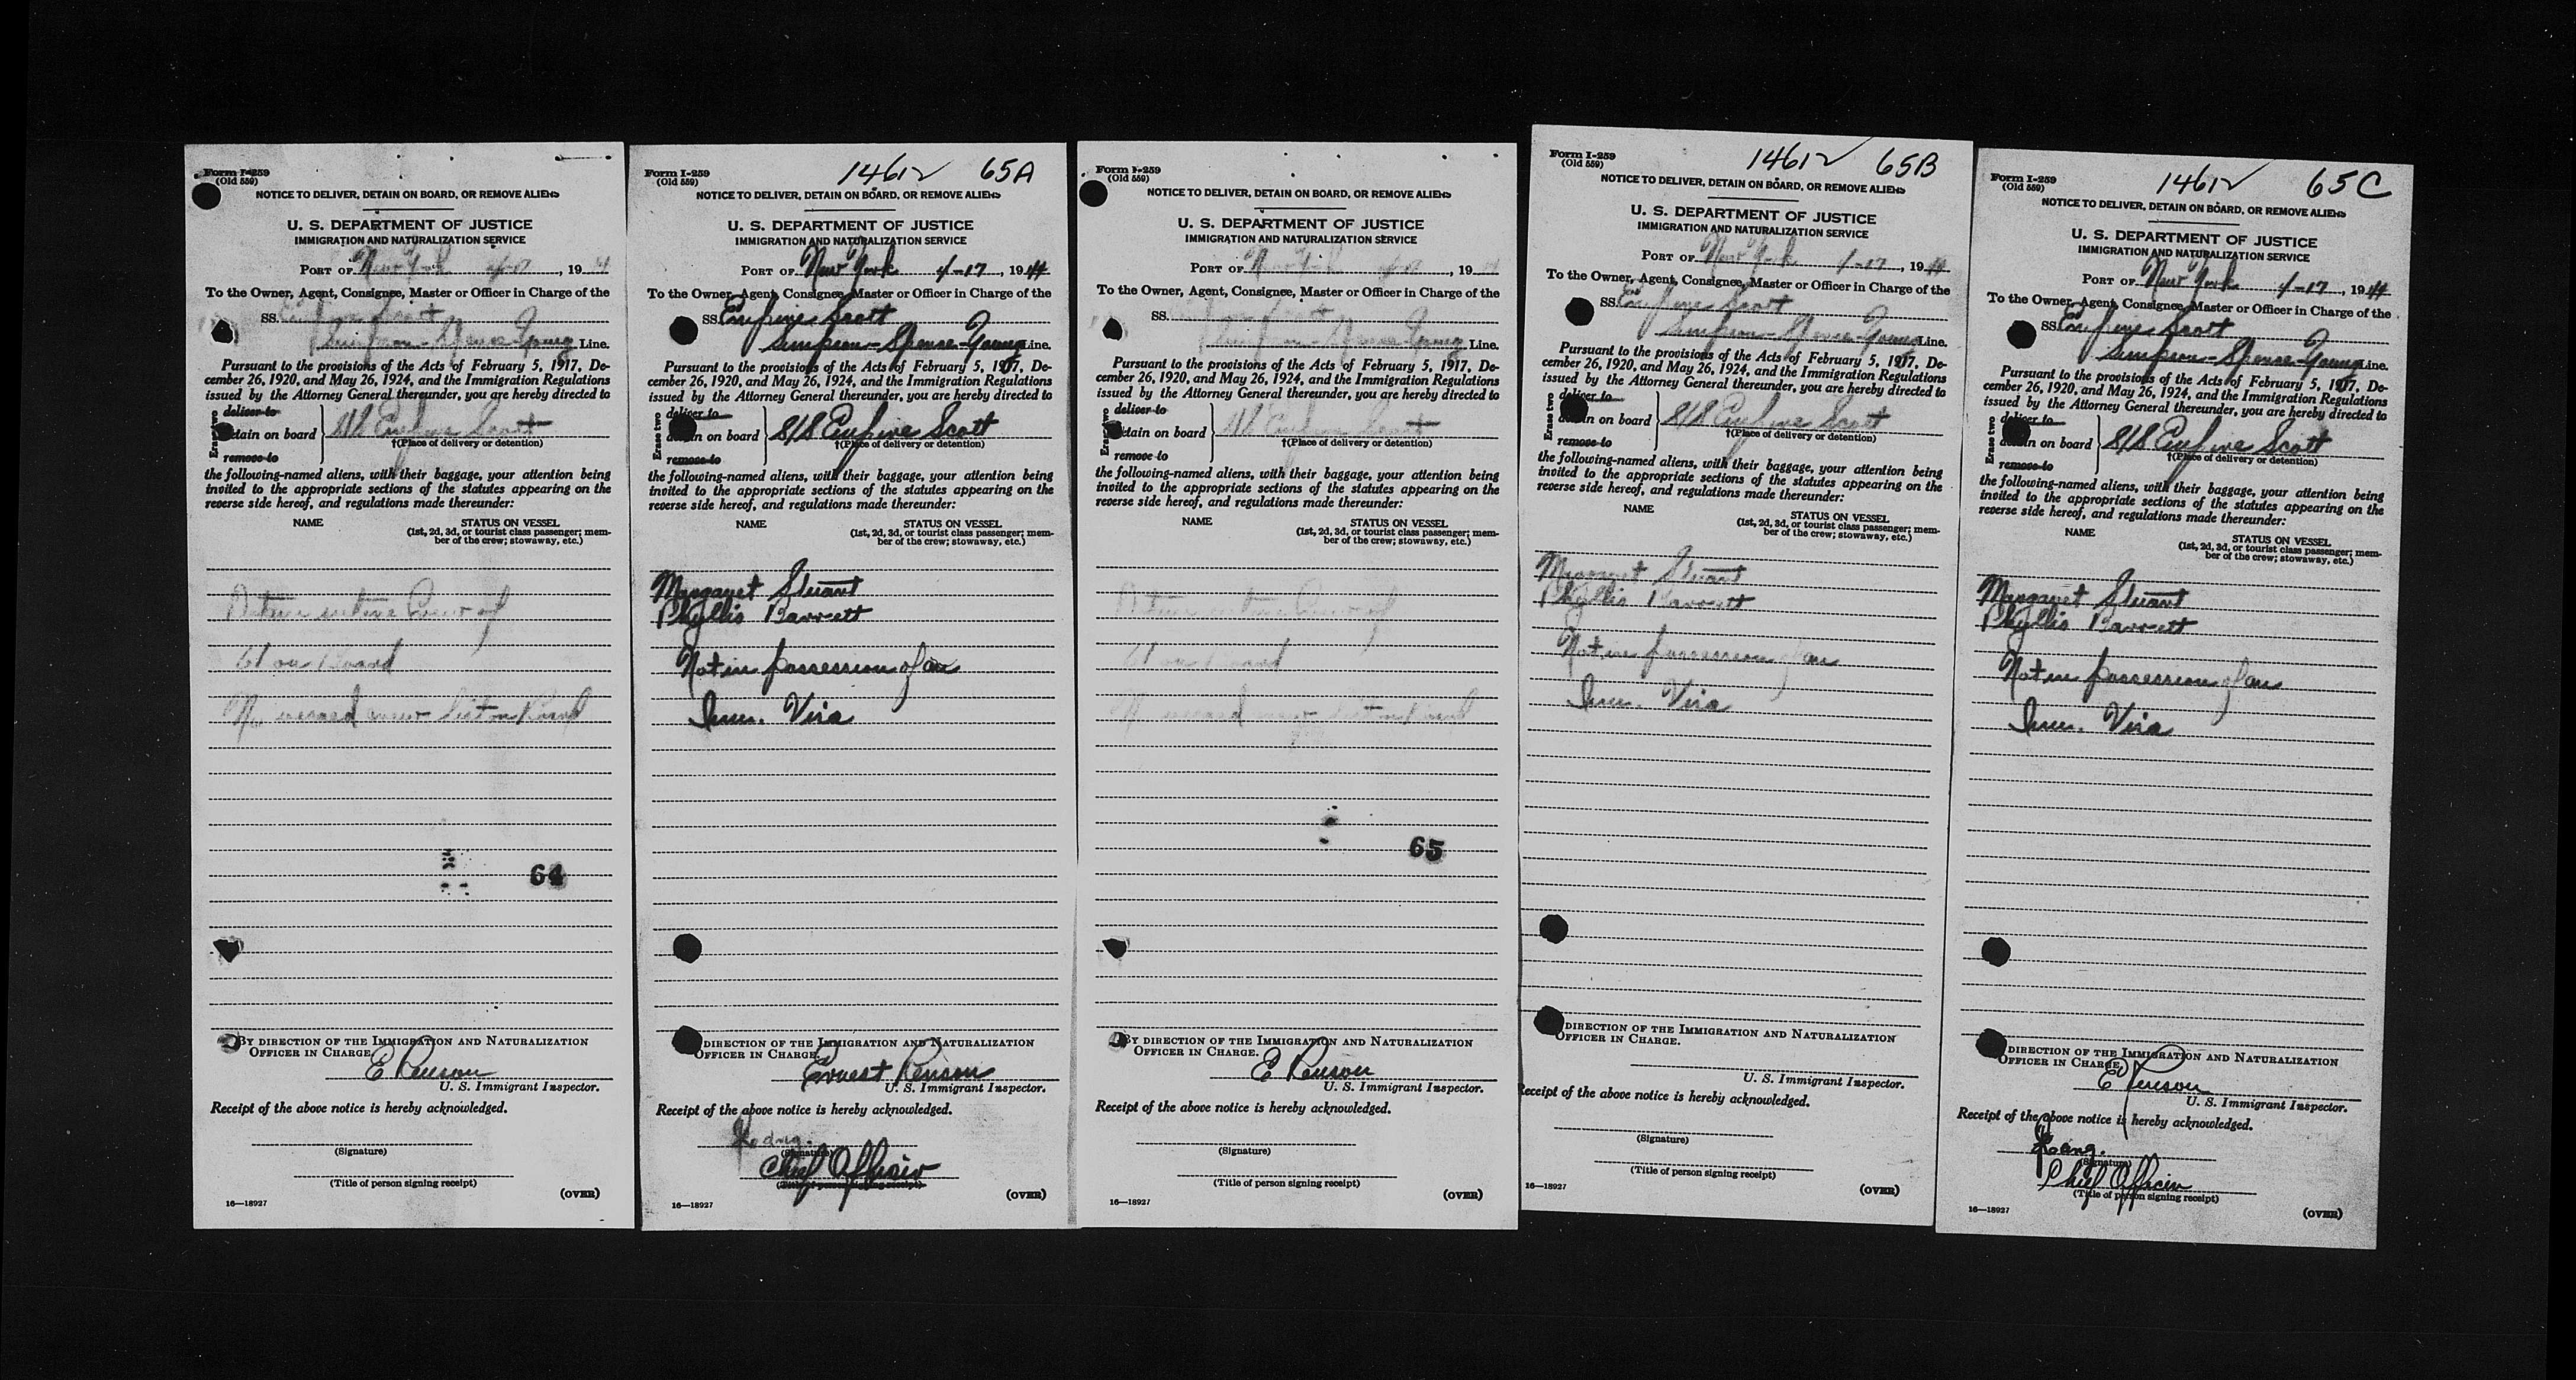 Form I-259
(Old 559)
NOTICE TO DELIVER, DETAIN ON BOARD, OR REMOVE ALIENS
U. S. DEPARTMENT OF JUSTICE
IMMIGRATION AND NATURALIZATION SERVICE
PORT OF New York , 19
To the Owner, Agent, Consignee, Master or Officer in Charge of the
SS. Scott
Simpson - Spence - Young Line.
Pursuant to the provisions of the Acts of February 5, 1917, De-
cember 26, 1920, and May 26, 1924, and the Immigration Regulations
issued by the Attorney General thereunder, you are hereby directed to
Erase two
deliver to
detain on board
remove to
S/S Scott
†(Place of delivery or detention)
the following-named aliens, with their baggage, your attention being
invited to the appropriate sections of the statutes appearing on the
reverse side hereof, and regulations made thereunder:
NAME STATUS ON VESSEL
(1st, 2d, 3d, or tourist class passenger; mem-
ber of the crew; stowaway, etc.)
entire crew of
61 on board
No crew list on board
64
BY DIRECTION OF THE IMMIGRATION AND NATURALIZATION
OFFICER IN CHARGE.
E Renson
U. S. Immigrant Inspector.
Receipt of the above notice is hereby acknowledged.
(Signature)
(Title of person signing receipt)
16—18927 (OVER)
14612 65A
Form I-259
(Old 559)
NOTICE TO DELIVER, DETAIN ON BOARD, OR REMOVE ALIENS
U. S. DEPARTMENT OF JUSTICE
IMMIGRATION AND NATURALIZATION SERVICE
PORT OF New York 1-17 , 1944
To the Owner, Agent, Consignee, Master or Officer in Charge of the
SS. Scott
Simpson - Spence - Young Line.
Pursuant to the provisions of the Acts of February 5, 1917, De-
cember 26, 1920, and May 26, 1924, and the Immigration Regulations
issued by the Attorney General thereunder, you are hereby directed to
Erase two
deliver to
detain on board
remove to
S/S Scott
†(Place of delivery or detention)
the following-named aliens, with their baggage, your attention being
invited to the appropriate sections of the statutes appearing on the
reverse side hereof, and regulations made thereunder:
NAME STATUS ON VESSEL
(1st, 2d, 3d, or tourist class passenger; mem-
ber of the crew; stowaway, etc.)
Margaret Stuart
Phyllis Barrett
Not in possession of an
Imm. Visa
DIRECTION OF THE IMMIGRATION AND NATURALIZATION
OFFICER IN CHARGE.
Ernest Renson
U. S. Immigrant Inspector.
Receipt of the above notice is hereby acknowledged.
(Signature)
Chief Officer
(Title of person signing receipt)
16—18927 (OVER)
Form I-259
(Old 559)
NOTICE TO DELIVER, DETAIN ON BOARD, OR REMOVE ALIENS
U. S. DEPARTMENT OF JUSTICE
IMMIGRATION AND NATURALIZATION SERVICE
PORT OF , 19
To the Owner, Agent, Consignee, Master or Officer in Charge of the
SS.
Simpson - Spence - Young Line.
Pursuant to the provisions of the Acts of February 5, 1917, De-
cember 26, 1920, and May 26, 1924, and the Immigration Regulations
issued by the Attorney General thereunder, you are hereby directed to
Erase two
deliver to
detain on board
remove to
†(Place of delivery or detention)
the following-named aliens, with their baggage, your attention being
invited to the appropriate sections of the statutes appearing on the
reverse side hereof, and regulations made thereunder:
NAME STATUS ON VESSEL
(1st, 2d, 3d, or tourist class passenger; mem-
ber of the crew; stowaway, etc.)
entire crew of
61 on board
65
BY DIRECTION OF THE IMMIGRATION AND NATURALIZATION
OFFICER IN CHARGE.
E Renson
U. S. Immigrant Inspector.
Receipt of the above notice is hereby acknowledged.
(Signature)
(Title of person signing receipt)
16—18927 (OVER)
14612 65B
Form I-259
(Old 559)
NOTICE TO DELIVER, DETAIN ON BOARD, OR REMOVE ALIENS
U. S. DEPARTMENT OF JUSTICE
IMMIGRATION AND NATURALIZATION SERVICE
PORT OF New York 1-17 , 1944
To the Owner, Agent, Consignee, Master or Officer in Charge of the
SS. Scott
Simpson - Spence - Young Line.
Pursuant to the provisions of the Acts of February 5, 1917, De-
cember 26, 1920, and May 26, 1924, and the Immigration Regulations
issued by the Attorney General thereunder, you are hereby directed to
Erase two
deliver to
detain on board
remove to
S/S Scott
†(Place of delivery or detention)
the following-named aliens, with their baggage, your attention being
invited to the appropriate sections of the statutes appearing on the
reverse side hereof, and regulations made thereunder:
NAME STATUS ON VESSEL
(1st, 2d, 3d, or tourist class passenger; mem-
ber of the crew; stowaway, etc.)
Margaret Stuart
Phyllis Barrett
Not in possession of an
Imm. Visa
DIRECTION OF THE IMMIGRATION AND NATURALIZATION
OFFICER IN CHARGE.
U. S. Immigrant Inspector.
Receipt of the above notice is hereby acknowledged.
(Signature)
(Title of person signing receipt)
16—18927 (OVER)
14612 65C
Form I-259
(Old 559)
NOTICE TO DELIVER, DETAIN ON BOARD, OR REMOVE ALIENS
U. S. DEPARTMENT OF JUSTICE
IMMIGRATION AND NATURALIZATION SERVICE
PORT OF New York 1-17 , 1944
To the Owner, Agent, Consignee, Master or Officer in Charge of the
SS. Scott
Simpson - Spence - Young Line.
Pursuant to the provisions of the Acts of February 5, 1917, De-
cember 26, 1920, and May 26, 1924, and the Immigration Regulations
issued by the Attorney General thereunder, you are hereby directed to
Erase two
deliver to
detain on board
remove to
S/S Scott
†(Place of delivery or detention)
the following-named aliens, with their baggage, your attention being
invited to the appropriate sections of the statutes appearing on the
reverse side hereof, and regulations made thereunder:
NAME STATUS ON VESSEL
(1st, 2d, 3d, or tourist class passenger; mem-
ber of the crew; stowaway, etc.)
Margaret Stuart
Phyllis Barrett
Not in possession of an
Imm. Visa
DIRECTION OF THE IMMIGRATION AND NATURALIZATION
OFFICER IN CHARGE.
E Renson
U. S. Immigrant Inspector.
Receipt of the above notice is hereby acknowledged.
(Signature)
Chief Officer
(Title of person signing receipt)
16—18927 (OVER)